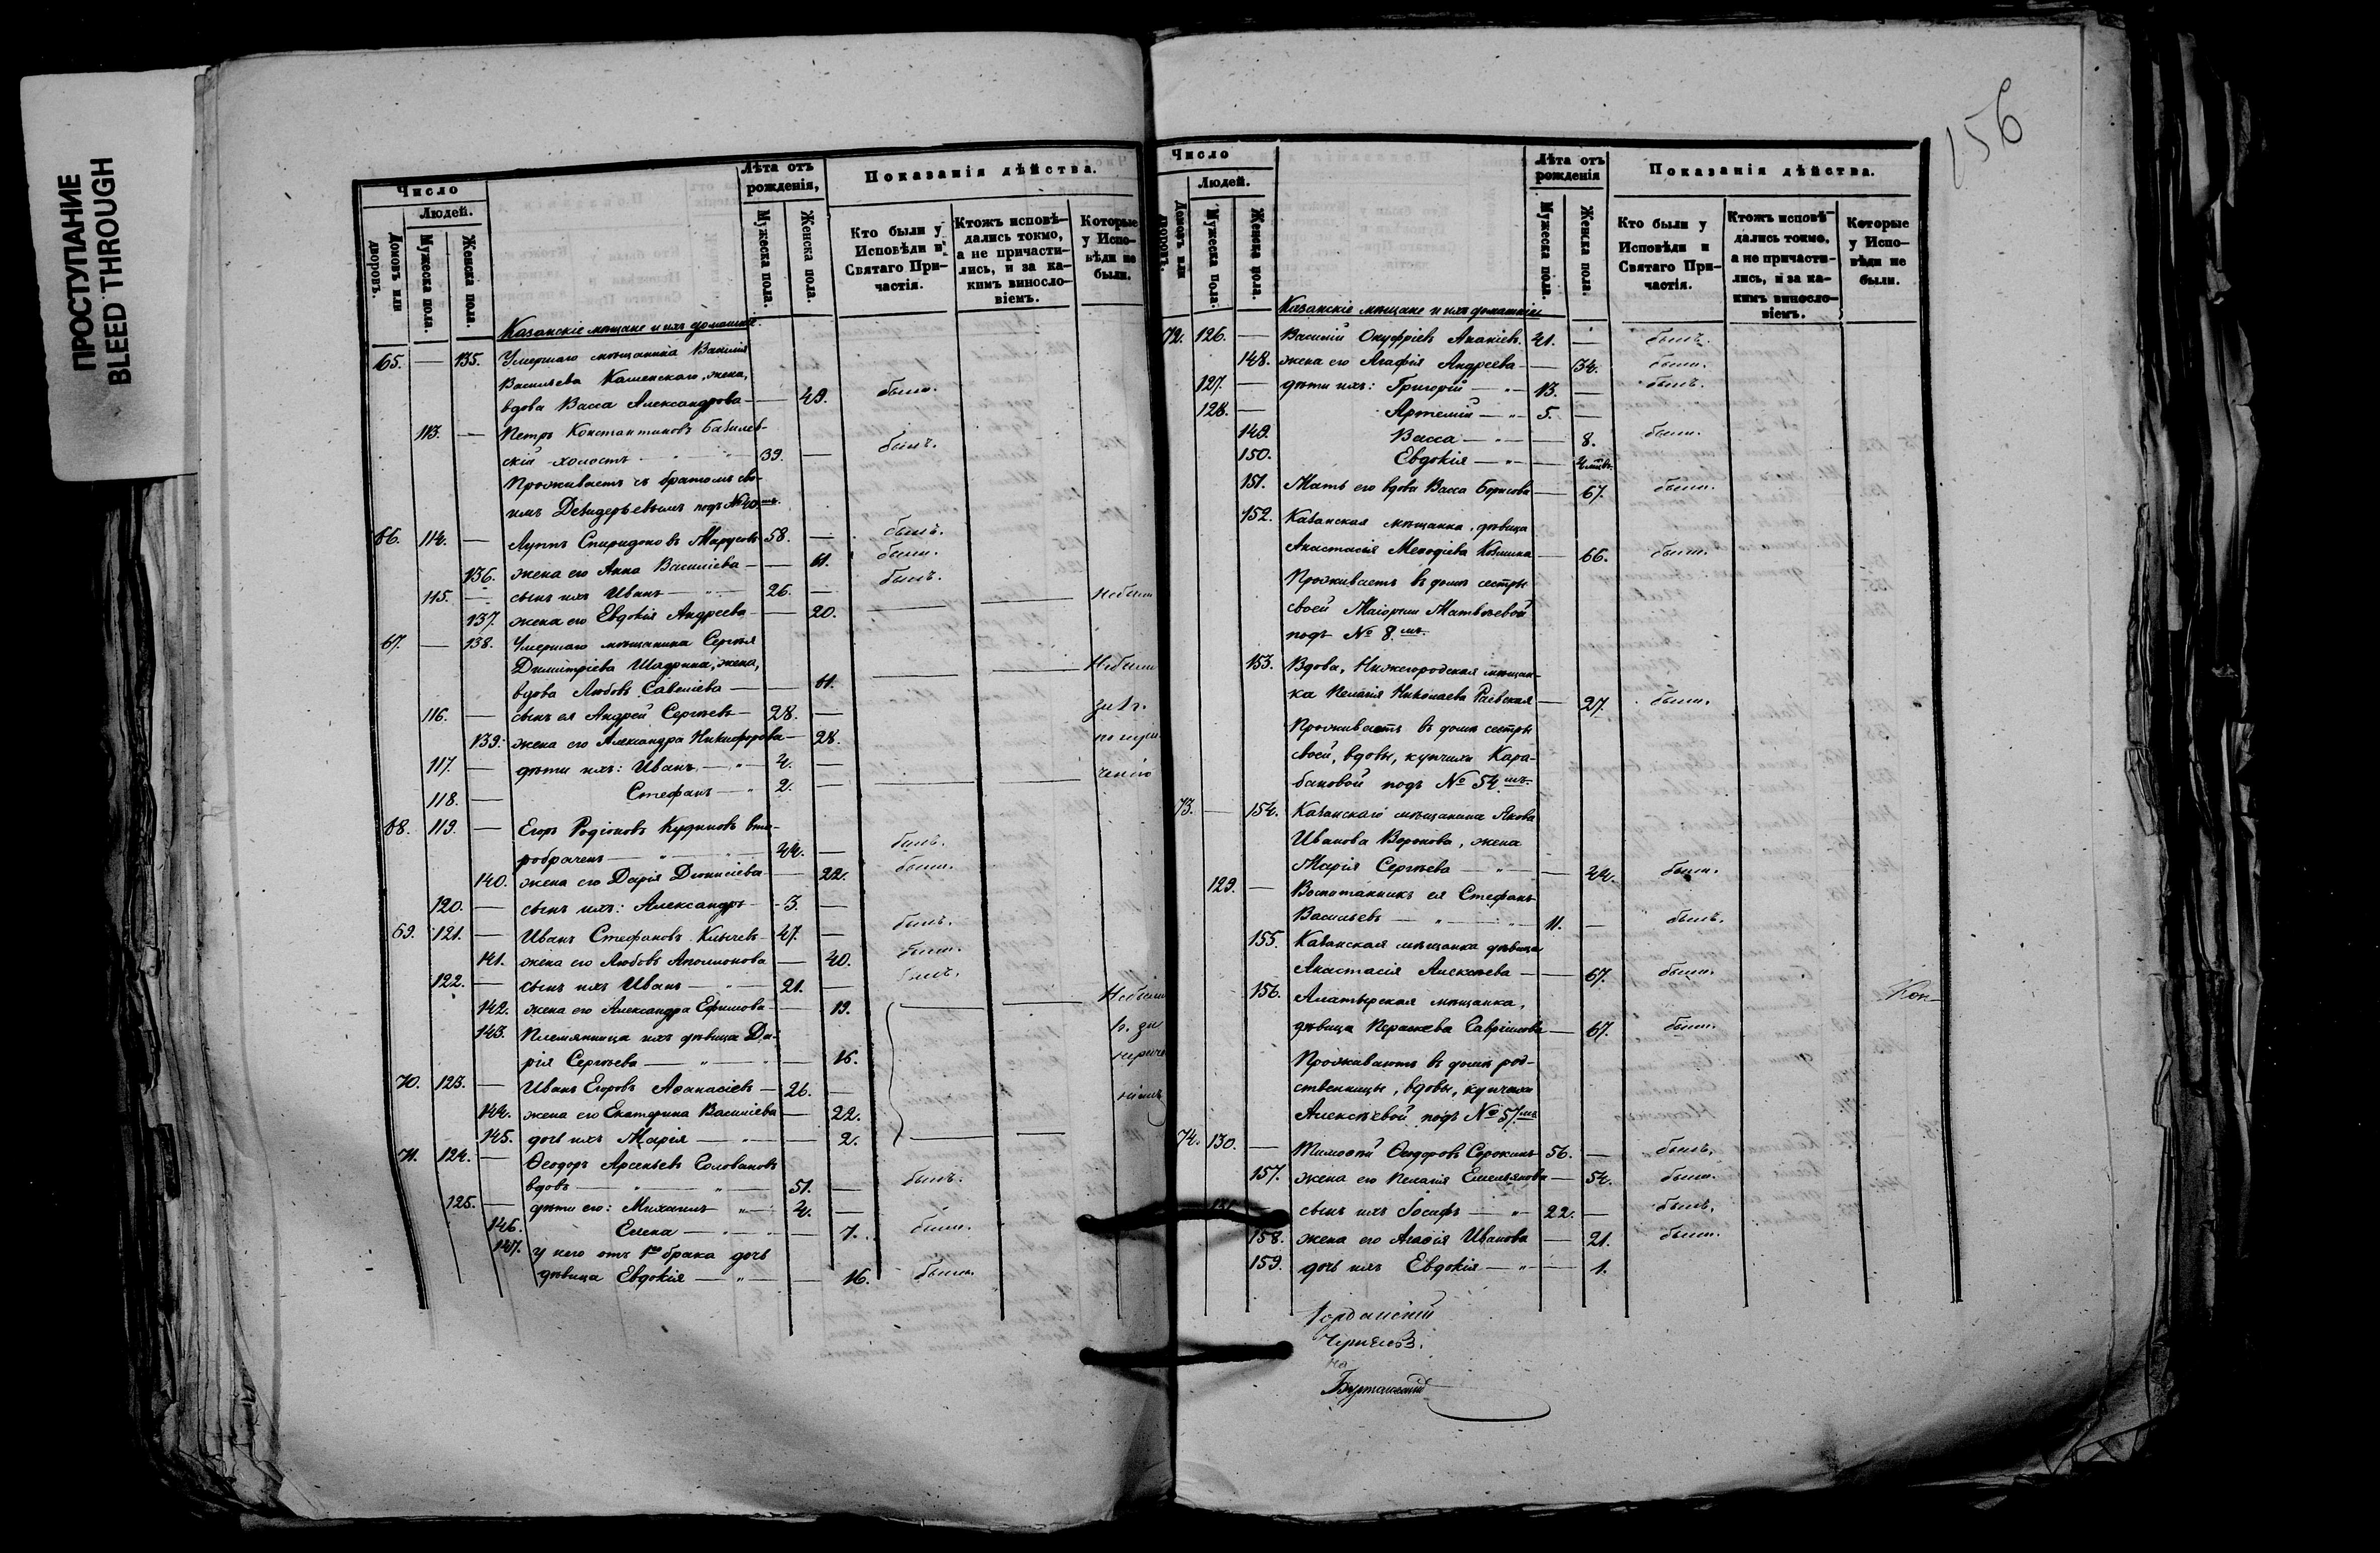 ПРОСТУПАНИЕ
BLEED THROUGH
156
Число
Людей.
Домовъ или дворовъ.
Мужеска пола.
Женска пола.
Лѣта отъ рожденія,
Мужеска пола.
Женска пола.
Показанія дѣйства.
Кто были у Исповѣди и Святаго Причастія.
Ктожъ исповѣдались токмо, а не причастились, и за какимъ винословіемъ.
Которые у Исповѣди не были.
Казанскіе мѣщане и ихъ домашніе.
65. — 135. Умершаго мѣщанина Василія
Васильева Каменскаго, жена,
вдова Васса Александрова — 49. была.
113. — Петръ Константиновъ
скій холостъ 39. — былъ.
Проживаетъ съ братомъ сво-
имъ подъ № 40мъ.
66. 114. — Луппъ Спиридоновъ 58. — былъ.
136. жена его Анна Василіева — 61. была.
115. — сынъ ихъ Иванъ — 26. — былъ.
137. жена его Евдокія Андреева — 20. — — не была
67. — 138. Умершаго мѣщанина Сергѣя
Димитріева Шадрина, жена,
вдова Любовь Савеліева — 61. — — Не были
116. — сынъ ея Андрей Сергѣевъ — 28. —
139. жена его Александра Никифорова — 28.
117. — дѣти ихъ: Иванъ — 4. —
118. — Стефанъ — 2. — — —
68. 119. — Егоръ Родіоновъ Кудиновъ вто-
робраченъ — 44. — былъ.
140. жена его Дарія Діонисіева — 22. была.
120. — сынъ ихъ: Александръ — 3. —
69. 121. — Иванъ Стефановъ Клычевъ — 47. — былъ.
141. жена его Любовь Аполлонова — 40. была.
122. — сынъ ихъ Иванъ — 21. — былъ.
142. жена его Александра Ефимова — 19. — — Не были
143. Племянница ихъ дѣвица Да-
рія Сергѣева — 16.
70. 123. — Иванъ Егоровъ Аѳанасіевъ — 26. —
144. жена его Екатерина Василіева — 22.
145. дочь ихъ Марія — 2. — —
71. 124. — Ѳеодоръ Арсеньевъ Головановъ
вдовъ — 51. — былъ.
125. — дѣти его: Михаилъ — 4. —
146. Елена — 7. была.
147. у него отъ 1го брака дочь
дѣвица Евдокія — 16. была.
Число
Людей.
Домовъ или дворовъ.
Мужеска пола.
Женска пола.
Лѣта отъ рожденія
Мужеска пола.
Женска пола.
Показанія дѣйства.
Кто были у Исповѣди и Святаго Причастія.
Ктожъ исповѣдались токмо, а не причастились, и за какимъ винословіемъ.
Которые у Исповѣди не были.
Казанскіе мѣщане и ихъ домашніе
72. 126. — Василій Онуфріевъ Ананіевъ. 41. — былъ.
148. жена его Агафія Андреева — 34. была.
127. — дѣти ихъ: Григорій — 13. — былъ.
128. — Артемій — 5. —
149. Васса — 8. была.
150. Евдокія —
151. Мать его вдова Васса Борисова — 67. была.
152. Казанская мѣщанка, дѣвица
Анастасія Меѳодіева — 66. была.
Проживаетъ въ домѣ сестры
своей Маіорши Матвѣевой
подъ № 8.мъ
153. Вдова, Нижегородская мѣщан-
ка Пелагія Николаева Раевская — 27. была.
Проживаетъ въ домѣ сестры
своей, вдовы, купчихи Кара-
бановой подъ № 54.мъ
73. — 154. Казанскаго мѣщанина Якова
Иванова Воронова, жена
Марія Сергѣева — 44. была.
129. — Воспитанникъ ея Стефанъ
Васильевъ — 11. — былъ.
155. Казанская мѣщанка дѣвица
Анастасія Алексѣева — 67. была.
156. Алатырская мѣщанка,
дѣвица Параскева Гавріилова — 67. была. Кон-
Проживаютъ въ домѣ род-
ственницы, вдовы, купчихи
Алексѣевой подъ № 57.мъ
74. 130. — Тимоѳей Ѳеодоровъ Сорокинъ 56. — былъ.
157. жена его Пелагія Емельянова — 54. была.
131. сынъ ихъ Іосифъ — 22. — былъ.
158. жена его Агаѳія Иванова — 21. была.
159. дочь ихъ Евдокія — 1.